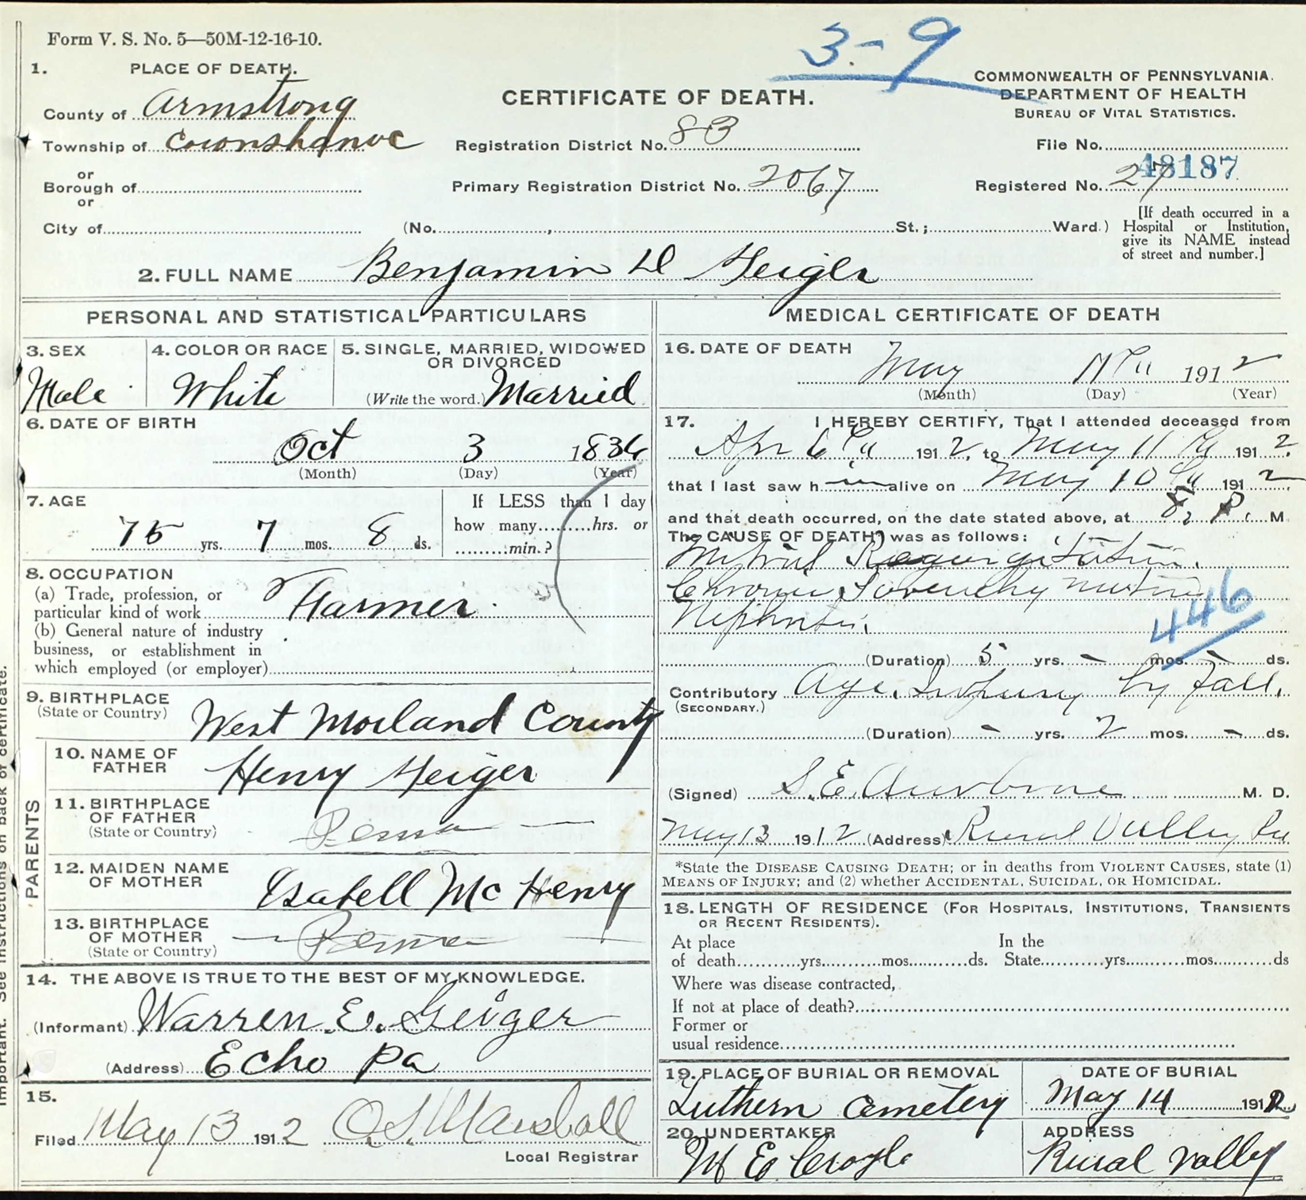 Form V. S. No. 5—50M-12-16-10.
3-9
1. PLACE OF DEATH.
County of Armstrong
Township of Cowanshanoc
or
Borough of
or
City of
CERTIFICATE OF DEATH.
Registration District No. 83
Primary Registration District No. 2067
(No. , St.; Ward.)
COMMONWEALTH OF PENNSYLVANIA.
DEPARTMENT OF HEALTH
BUREAU OF VITAL STATISTICS.
File No. 48187
Registered No. 27
[If death occurred in a
Hospital or Institution,
give its NAME instead
of street and number.]
2. FULL NAME Benjamin D Geiger
PERSONAL AND STATISTICAL PARTICULARS
3. SEX
Male
4. COLOR OR RACE
White
5. SINGLE, MARRIED, WIDOWED
OR DIVORCED
(Write the word.) Married
6. DATE OF BIRTH
Oct 3 1836
(Month) (Day) (Year)
7. AGE
75 yrs. 7 mos. 8 ds.
If LESS than 1 day
how many hrs. or
min.?
8. OCCUPATION
(a) Trade, profession, or
particular kind of work Farmer
(b) General nature of industry
business, or establishment in
which employed (or employer)
9. BIRTHPLACE
(State or Country) West Morland County
PARENTS
10. NAME OF
FATHER Henry Geiger
11. BIRTHPLACE
OF FATHER
(State or Country) Penna
12. MAIDEN NAME
OF MOTHER Isabell Mc Henry
13. BIRTHPLACE
OF MOTHER
(State or Country) Penna
14. THE ABOVE IS TRUE TO THE BEST OF MY KNOWLEDGE.
(Informant) Warren E. Geiger
(Address) Echo Pa
15.
Filed May 13 1912 Marshall
Local Registrar
MEDICAL CERTIFICATE OF DEATH
16. DATE OF DEATH
May 11th 1912
(Month) (Day) (Year)
17. I HEREBY CERTIFY, That I attended deceased from
Apr 6th 1912, to May 11th 1912
that I last saw him alive on May 10th 1912
and that death occurred, on the date stated above, at 8 P. M
The CAUSE OF DEATH* was as follows:
Mitral Regurgitation.
Chronic
Nephritis.
446
(Duration) 5 yrs. - mos. - ds.
Contributory Age. Injury by fall.
(SECONDARY.)
(Duration) - yrs. 2 mos. - ds.
(Signed) S. E. M. D.
May 13 1912 (Address) Rural Valley Pa
*State the DISEASE CAUSING DEATH; or in deaths from VIOLENT CAUSES, state (1)
MEANS OF INJURY; and (2) whether ACCIDENTAL, SUICIDAL, OR HOMICIDAL.
18. LENGTH OF RESIDENCE (FOR HOSPITALS, INSTITUTIONS, TRANSIENTS
OR RECENT RESIDENTS).
At place
of death yrs. mos. ds.
In the
State yrs. mos. ds
Where was disease contracted,
If not at place of death?
Former or
usual residence
19. PLACE OF BURIAL OR REMOVAL
Luthern Cemetery
DATE OF BURIAL
May 14 1912
20. UNDERTAKER
M E Croyle
ADDRESS
Rural Valley
Important. See instructions on back of certificate.